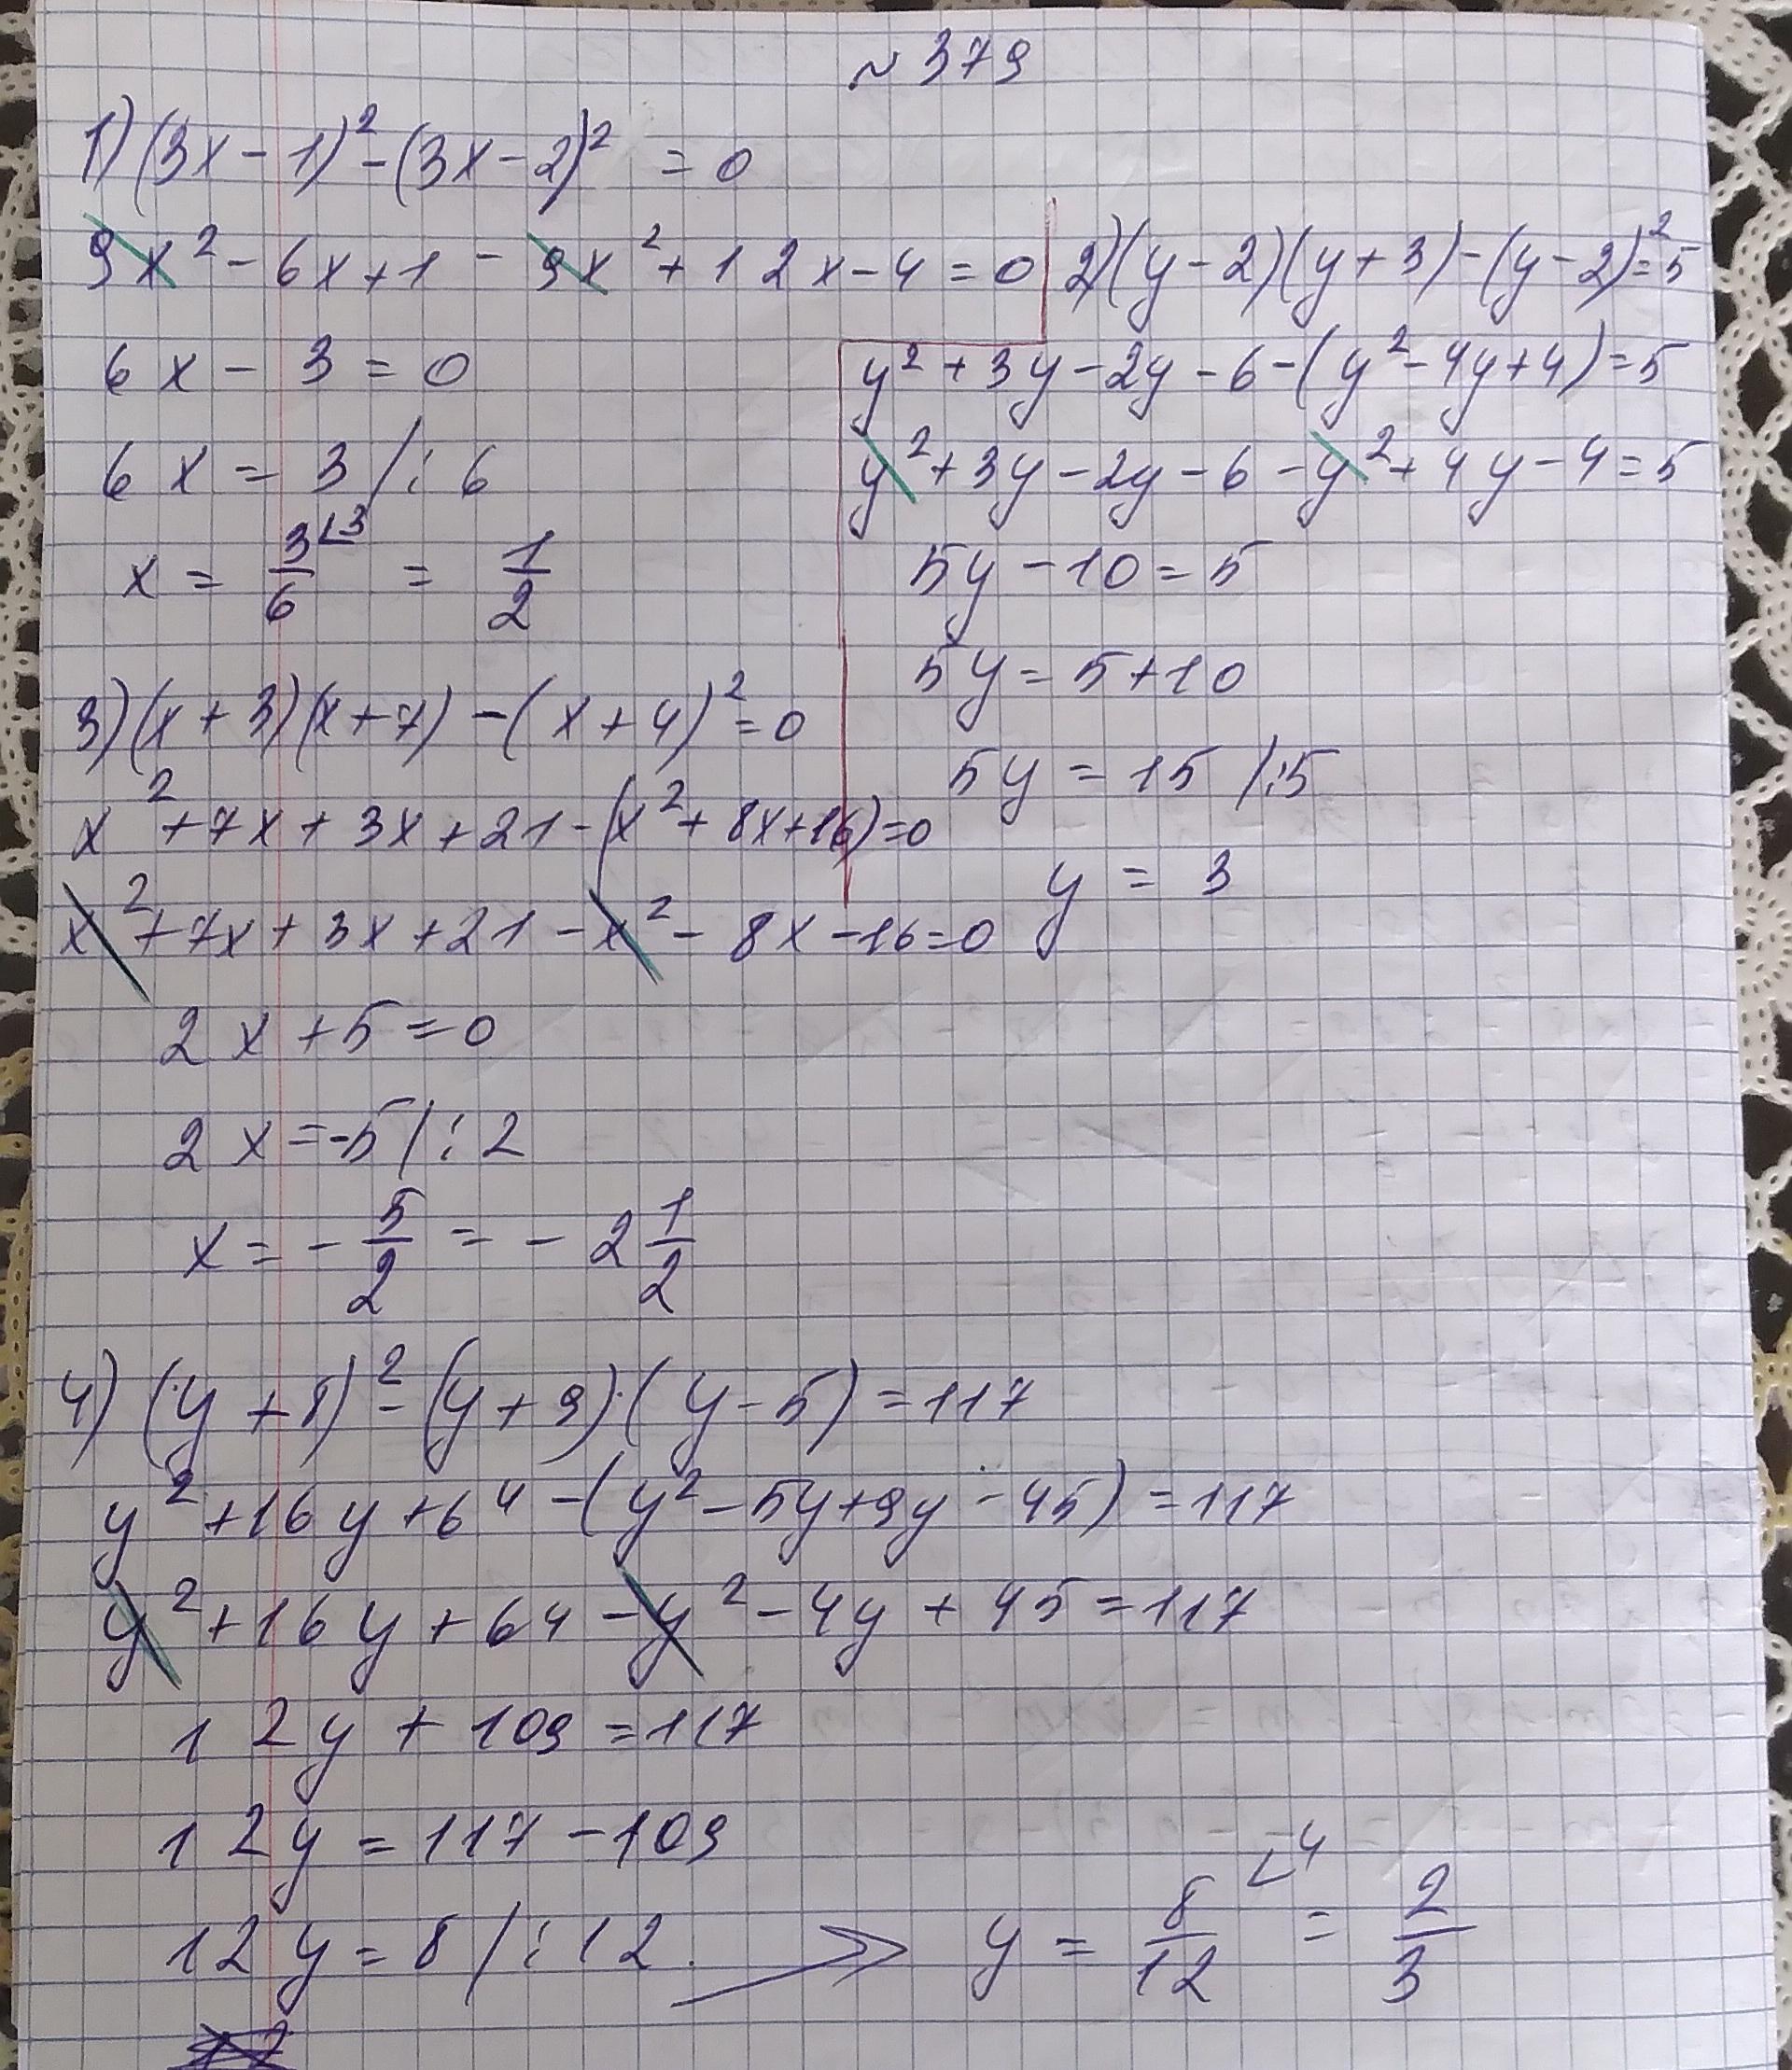 ~ 379
1) (3x - 1)² - (3x - 2)² = 0
9x² - 6x + 1 - 9x² + 12x - 4 = 0
6x - 3 = 0
6x = 3 /: 6
x = 3/6 ∟3 = 1/2
2) (y - 2)(y + 3) - (y - 2)² = 5
y² + 3y - 2y - 6 - (y² - 4y + 4) = 5
y² + 3y - 2y - 6 - y² + 4y - 4 = 5
5y - 10 = 5
5y = 5 + 10
5y = 15 /:5
y = 3
3) (x + 3)(x + 7) - (x + 4)² = 0
x² + 7x + 3x + 21 - (x² + 8x + 16) = 0
x² + 7x + 3x + 21 - x² - 8x - 16 = 0
2x + 5 = 0
2x = -5 /: 2
x = - 5/2 = - 2 1/2
4) (y + 8)² - (y + 9)·(y - 5) = 117
y² + 16y + 64 - (y² - 5y + 9y - 45) = 117
y² + 16y + 64 - y² - 4y + 45 = 117
12y + 109 = 117
12y = 117 - 109
12y = 8 /: 12.
y = 8/12 ∟4 = 2/3